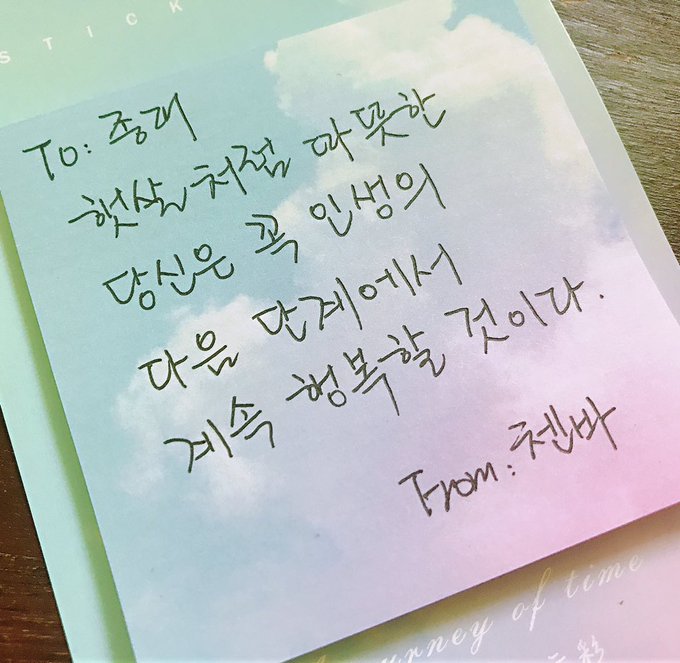 STICK
To: 종대
햇살처럼 따뜻한
당신은 꼭 인생의
다음 단계에서
계속 행복할 것이다.
From: 첸바
journey of time